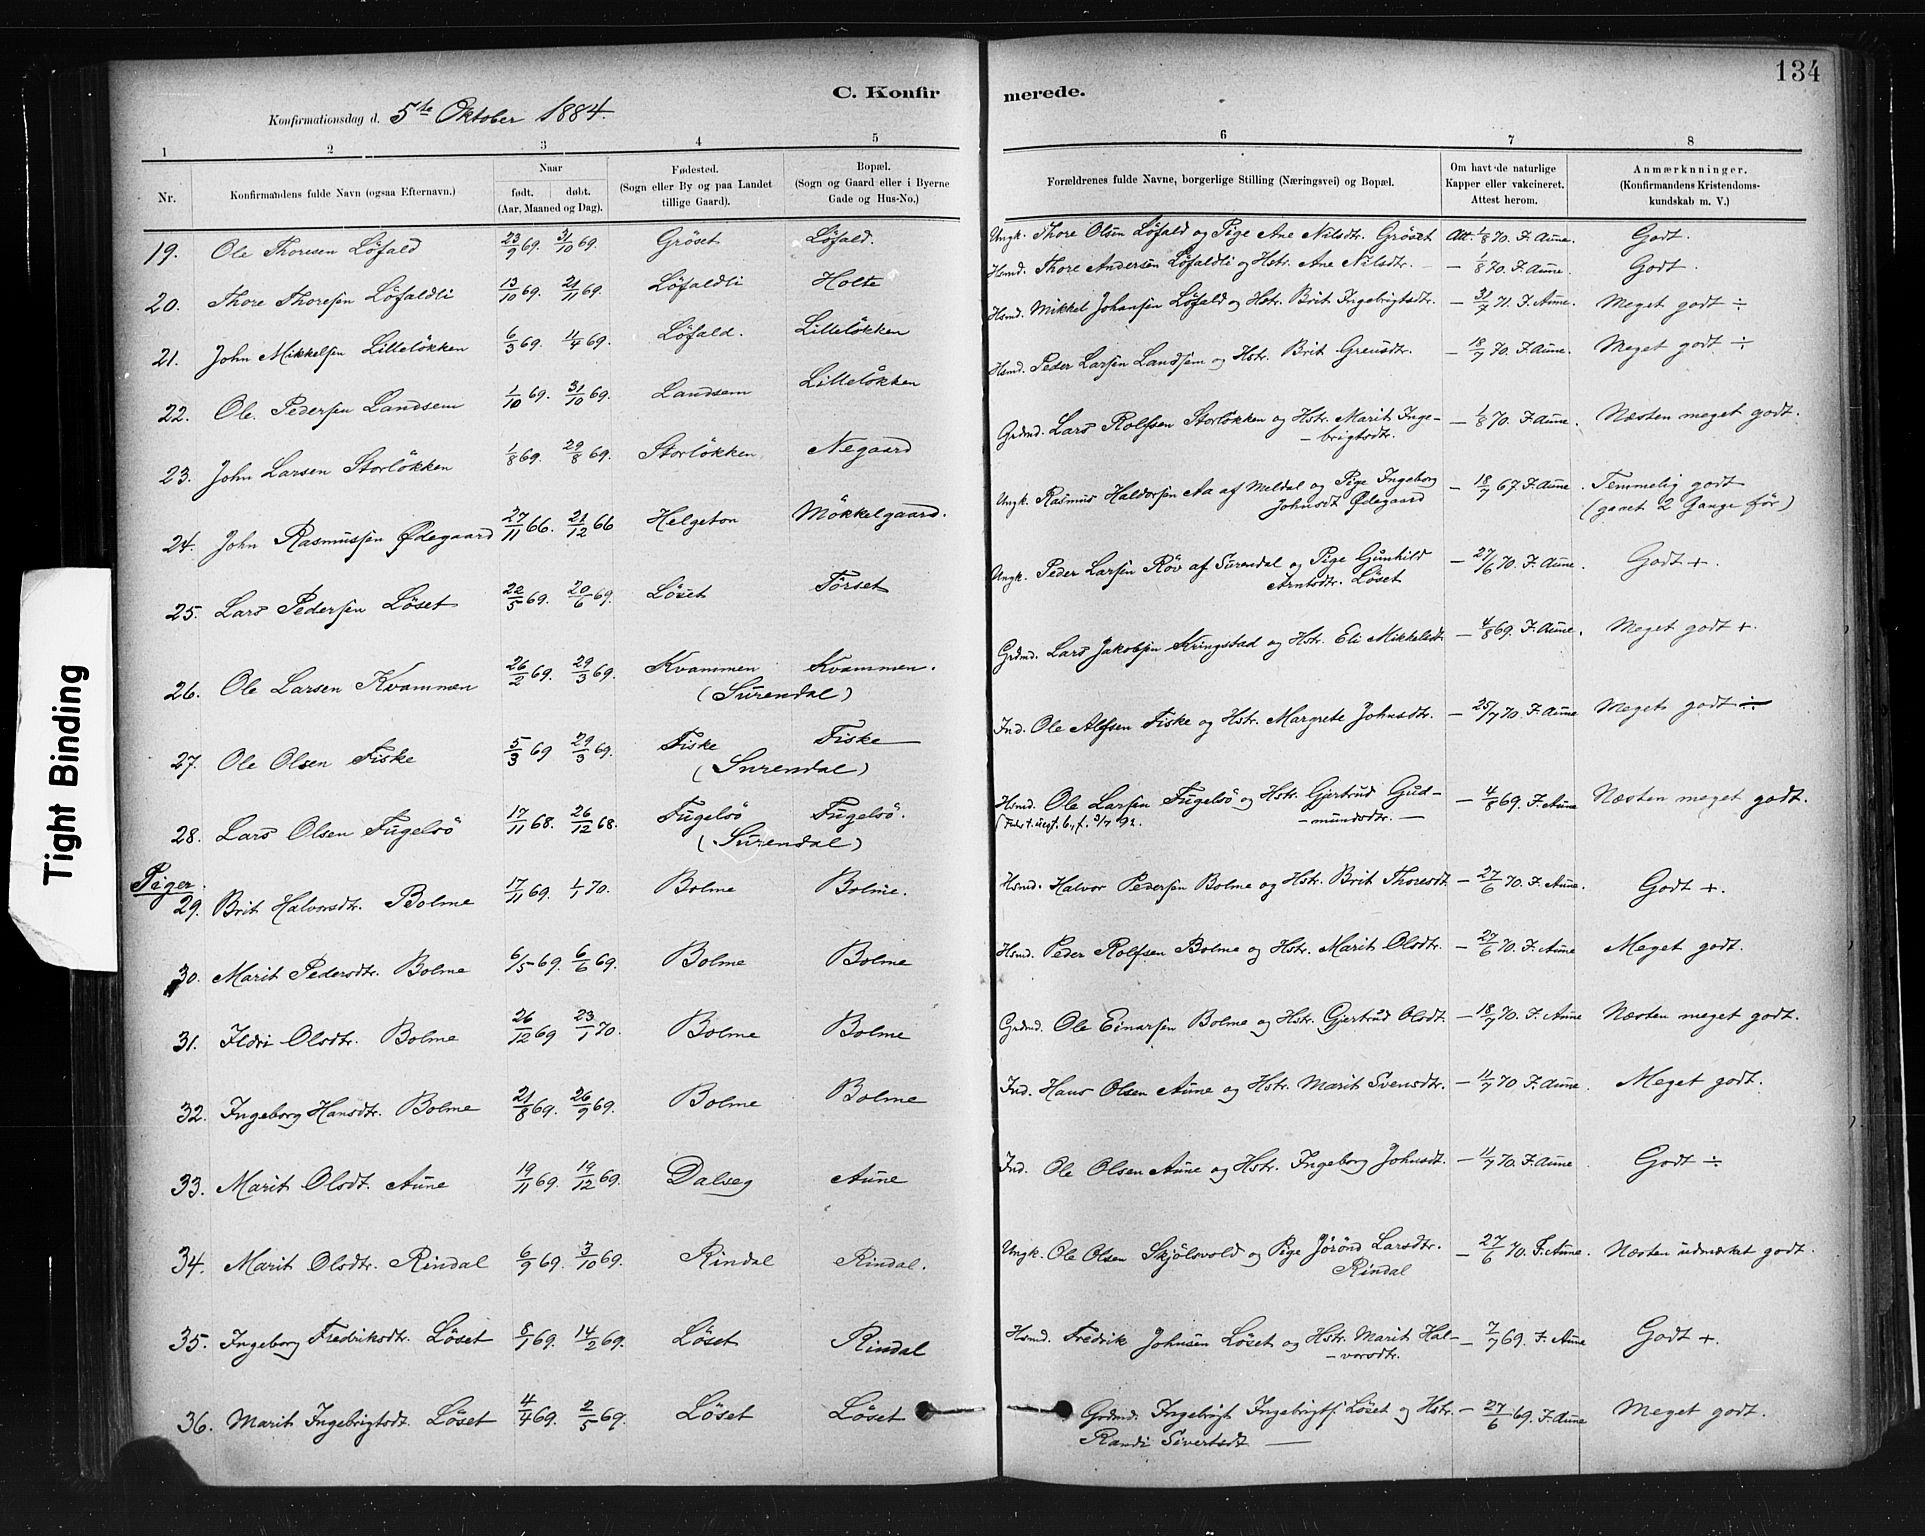 134
C. Konfirmerede.
Konfirmationsdag d. 5te Oktober 1884.
1 2 3 4 5 6 7 8
Nr. Konfirmandens fulde Navn (ogsaa Efternavn.) Naar født. døbt. (Aar, Maaned og Dag). Fødested. (Sogn eller By og paa Landet tillige Gaard). Bopæl. (Sogn og Gaard eller i Byerne Gade og Hus-No.) Forældrenes fulde Navne, borgerlige Stilling (Næringsvei) og Bopæl. Om havt de naturlige Kapper eller vakcineret. Attest herom. Anmærknninger. (Konfirmandens Kristendomskundskab m. V.)
19. Ole Thoresen Löfald 23/9 69. 31/10 69. Gröset Löfald. Ungk. Thore Olsen Löfald og Pige Ane Nilsdtr. Gröset Att. 1/8 70. F. Aune. Godt.
20. Thore Thoresen Löfaldli 13/10 69. 21/11 69. Löfaldli Holte Hsmd. Thore Andersen Löfaldli og Hstr. Ane Nilsdtr. — 1/8 70. F. Aune. Godt.
21. John Mikkelsen Lilleløkken 6/3 69. 4/4 69. Löfald. Lilleløkken Hsmd. Mikkel Johansen Löfald og Hstr. Brit Ingebrigtsdtr. — 31/7 71. F. Aune. Meget godt ÷
22. Ole Pedersen Landsem 1/10 69. 31/10 69. Landsem Lilleløkken Hsmd. Peder Larsen Landsem og Hstr. Brit Greusdtr. — 18/7 70. F. Aune. Meget godt ÷
23. John Larsen Storløkken 1/8 69. 29/8 69. Storløkken Negaard Grdmd. Lars Rolfsen Storløkken og Hstr. Marit Inge-
brigtsdtr. — 1/8 70. F. Aune. Næsten meget godt.
24. John Rasmussen Ødegaard 27/11 66. 21/12 66 Helgeton Mökkelgaard. Ungk. Rasmus Haldorsen Aa af Meldal og Pige Ingeborg
Johnsdt Ødegaard — 18/7 67. F. Aune. Temmelig godt
(gaaet 2 Gange før)
25. Lars Pedersen Löset 22/5 69. 20/6 69. Löset Törset Ungk. Peder Larsen Röv af Surendal og Pige Gunhild
Arntsdtr. Löset — 27/6 70. F. Aune. Godt +.
26. Ole Larsen Kvammen 26/2 69. 29/3 69. Kvammen Kvammen.
(Surendal) Grdmd. Lars Jakobsen Kringstad og Hstr. Eli Mikkelsdt. — 4/8 69. F. Aune. Meget godt +
27. Ole Olsen Fiske 5/3 69 29/3 69. Fiske Fiske
(Surendal) Ind. Ole Alfsen Fiske og Hstr. Margrete Johnsdtr. — 25/7 70. F. Aune Meget godt ÷
28. Lars Olsen Fugelsö 17/11 68. 26/12 68. Fugelsö Fugelsö.
(Surendal) Hsmd. Ole Larsen Fugelsö og Hstr. Gjertrud Gud-
mundsdtr. — — 4/8 69. F. Aune Næsten meget godt.
Piger.
29. Brit Halvorsdtr. Bolme 17/11 69. 1/1 70. Bolme Bolme. Hsmd. Halvor Pedersen Bolme og Hstr. Brit Thoresdt — 27/6 70. F. Aune. Godt +.
30. Marit Pedersdtr. Bolme 6/5 69 6/6 69. Bolme Bolme Hsmd. Peder Rolfsen Bolme og Hstr. Marit Olsdtr. — 27/6 70. F. Aune Meget godt.
31. Ildri Olsdtr. Bolme 26/12 69 23/1 70. Bolme Bolme Grdmd. Ole Einarsen Bolme og Hstr. Gjertrud Olsdt. — 18/7 70. F. Aune Næsten meget godt.
32. Ingeborg Hansdtr. Bolme 21/8 69. 26/9 69. Bolme Bolme Ind. Hans Olsen Aune og Hstr. Marit Svensdtr. — 11/7 70 F. Aune. Meget godt.
33. Marit Olsdt. Aune 19/11 69. 19/12 69. Dalseg Aune Ind. Ole Olsen Aune og Hstr. Ingeborg Johnsdt. — 11/7 70. F. Aune. Godt ÷
34. Marit Olsdtr. Rindal 6/9 69. 3/10 69. Rindal Rindal. Ungk. Ole Olsen Skjölsvold og Pige Jörönd Larsdtr.
Rindal — 27/6 70. F. Aune. Næsten udmærket godt.
35. Ingeborg Fredriksdtr. Löset 8/1 69. 14/2 69. Löset Rindal Hsmd. Fredrik Johnsen Löset og Hstr. Marit Hal-
vorsdtr. — 7/7 69. F. Aune Godt +.
36. Marit Ingebrigtsdt. Löset 4/4 69. 2/5 69. Löset Löset Grdmd. Ingebrigt Ingebrigtsf Löset og Hstr.
Randi Sivertsdt — — 27/6 69. F. Aune Meget godt.
Tight Binding